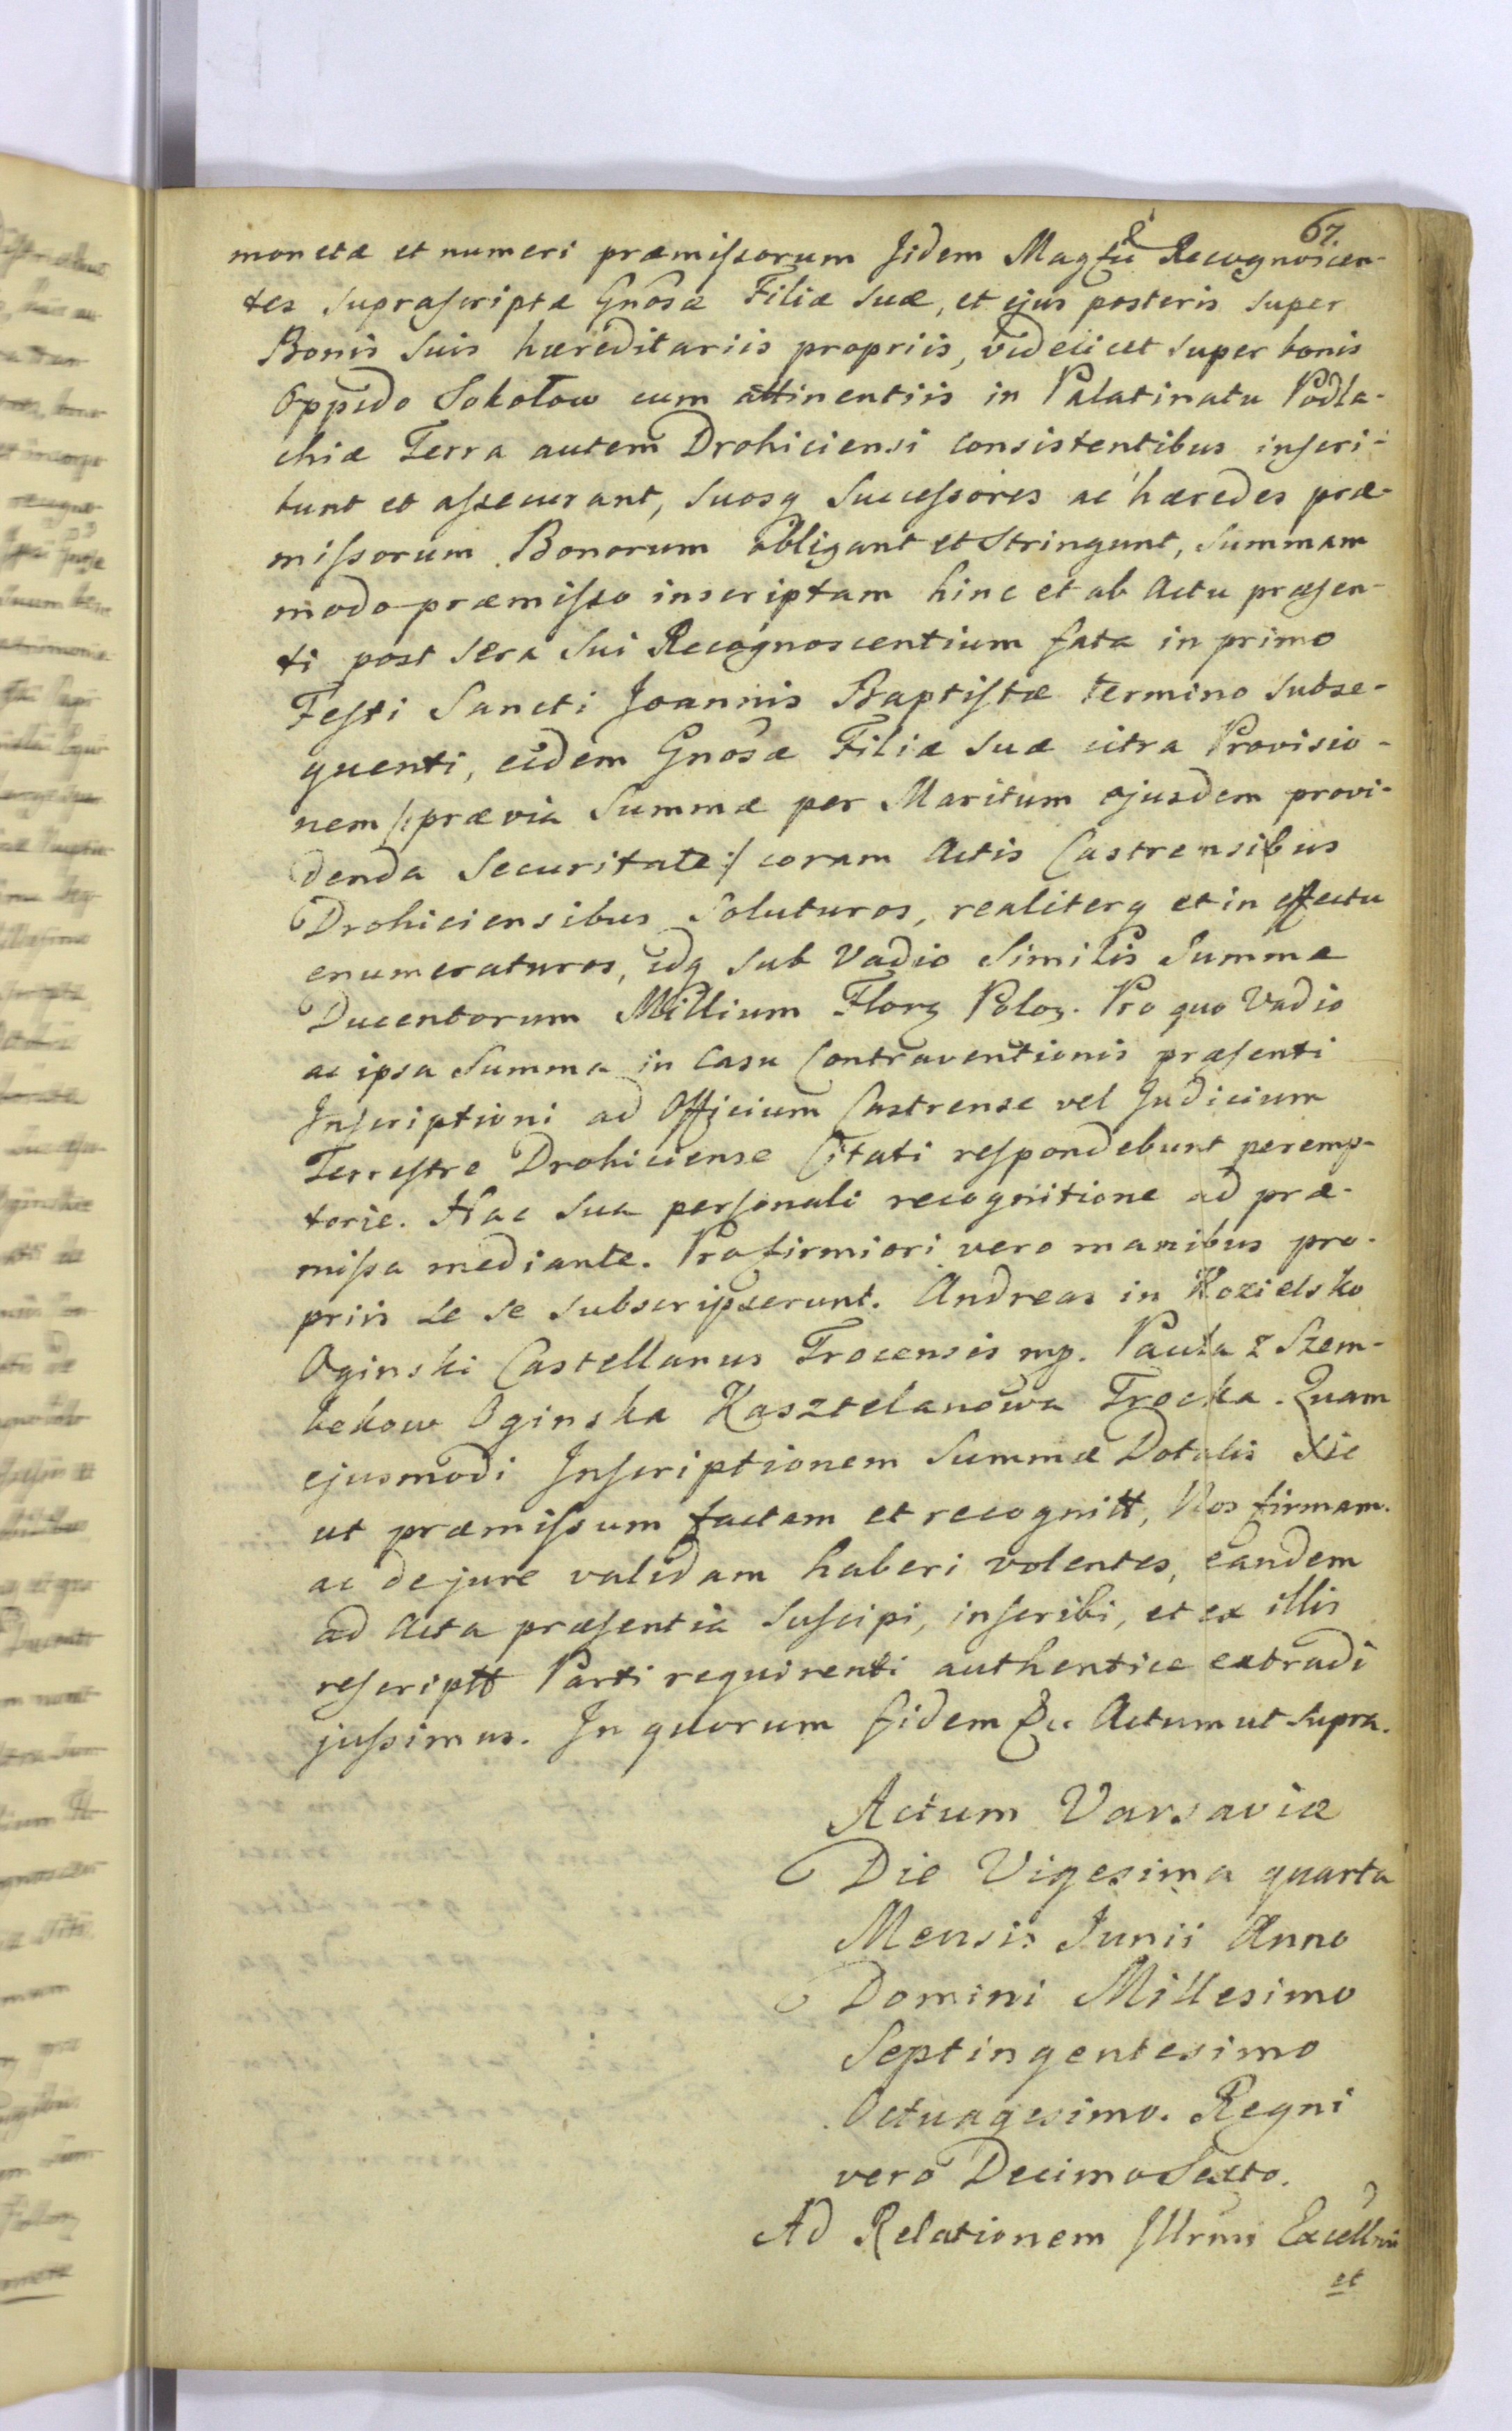 67.
monetæ et numeri præmissorum Jidem Magfci Recognoscen-
tes suprascriptæ Gnosæ Filiæ suæ, et ejus posteris super
Bonis suis hæreditariis propriis, videlicet super bonis
Oppido Sokołow cum attinentiis in Palatinatu Podla-
chiæ Terra autem Drohiciensi consistentibus inscri-
bunt et assecurant, suosq successores ac hæredes præ-
missorum Bonorum obligant et stringunt, summam
modo præmisso inscriptam hinc et ab Actu præsen-
ti post sera sui Recognoscentium fata in primo
Festi Sancti Joannis Baptistæ termino subse-
quenti, eidem Gnosæ Filiæ suæ citra Provisio-
nem /:prævia summæ per Maritum ejusdem provi-
denda securitate:/ coram Actis Castrensibus
Drohiciensibus soluturos, realiterq et in effectu
enumeraturos, idq sub Vadio similis summæ
Ducentorum Millium Florz Poloz. Pro quo Vadio
ac ipsa summa in casu Contraventionis præsenti
Inscriptioni ad Officium Castrense vel Judicium
Terrestre Drohiciense Citati respondebunt peremp-
torie. Hac sua personali recognitione ad præ-
missa mediante. Pro firmiori vero manibus pro-
priis se se subscripserunt. Andreas in Kozielsko
Oginski Castellanus Trocensis mp. Paula z Szem-
bekow Oginska Kasztelanowa Trocka. Quam
ejusmodi Inscriptionem summæ Dotalis sic
ut præmissum factam et recognitt, Nos firmam
ac de jure validam haberi volentes, eandem
ad Acta præsentia suscipi, inscribi, et ex illis
rescriptt Parti requirenti authentice extradi
jussimus. In quorum fidem &c Actum ut supra.
Actum Varsaviæ
Die Vigesima quarta
Mensis Junii Anno
Domini Millesimo
Septingentesimo
Octuagesimo. Regni
vero Decimo Sexto.
Ad Relationem Jllrmi Excellmi
et